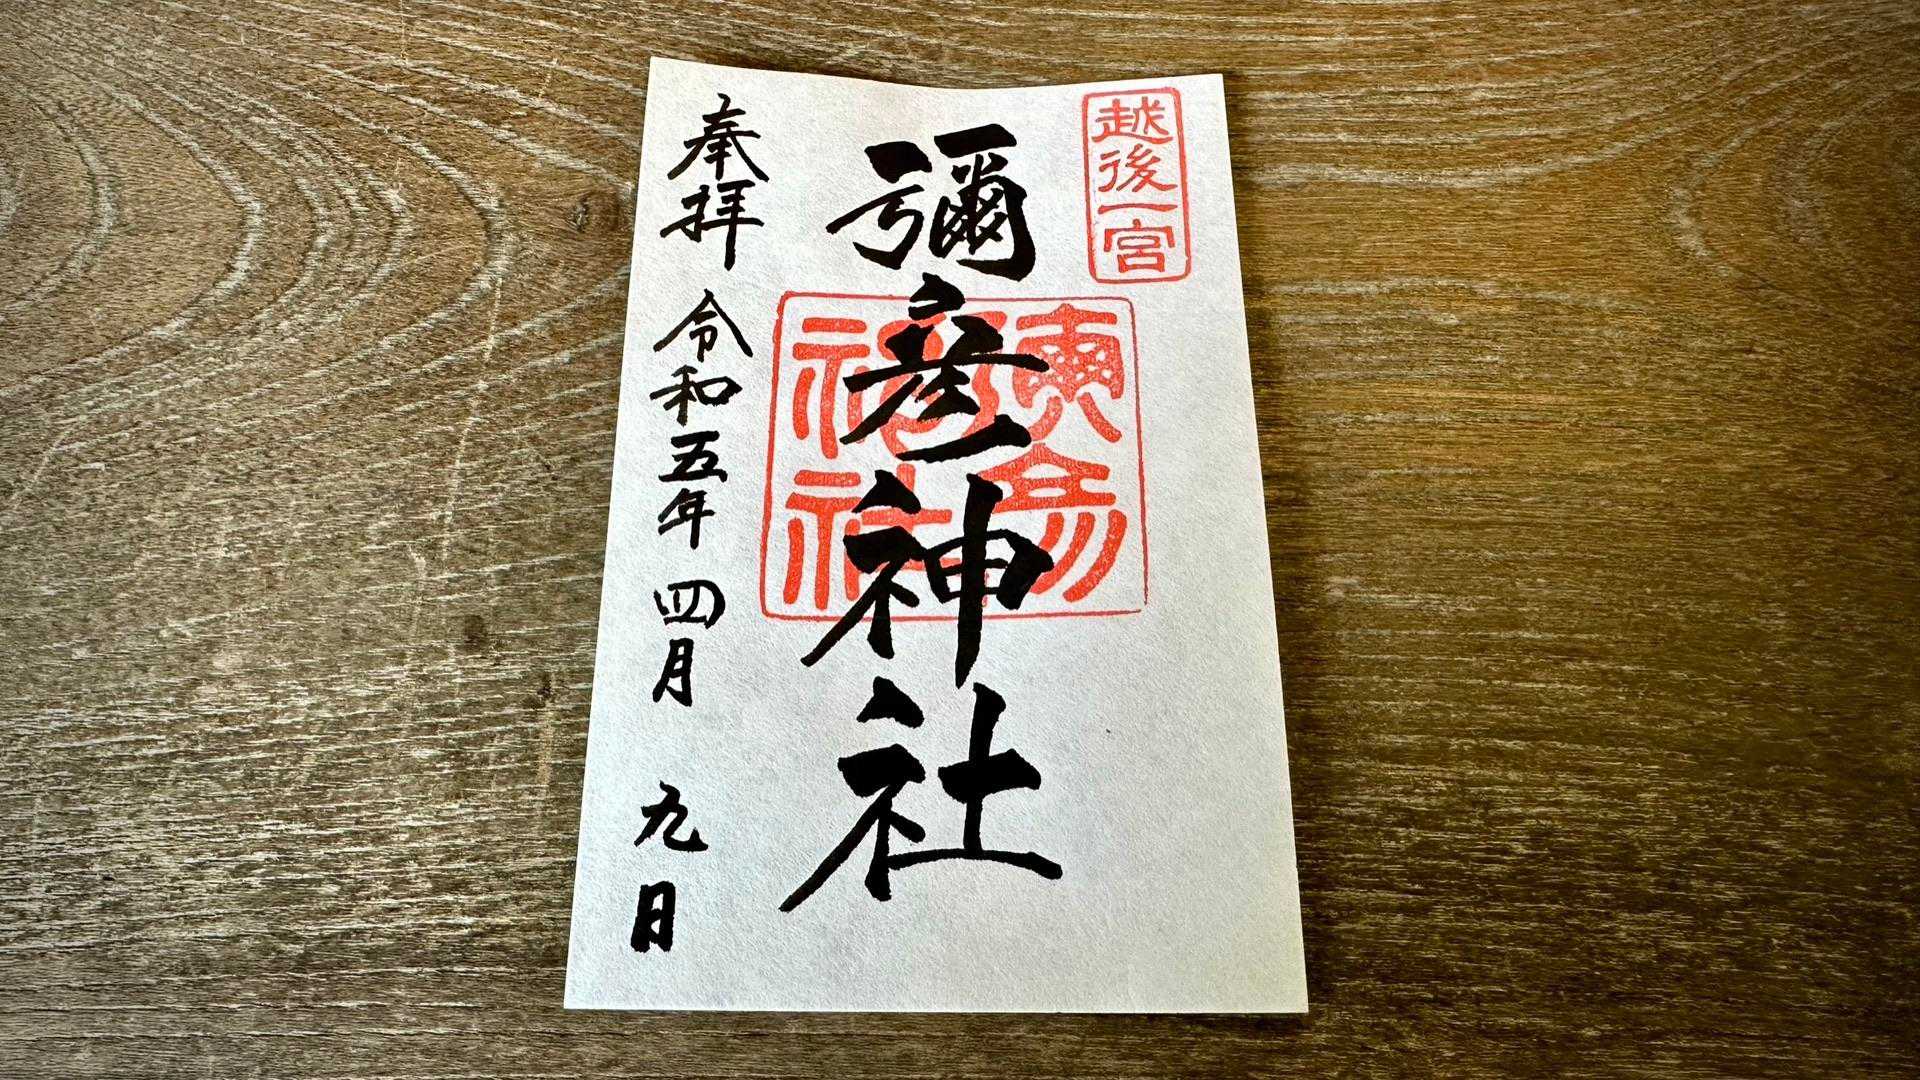 越後一宮
彌彦神社
彌彦神社
奉拝 令和五年 四月 九日